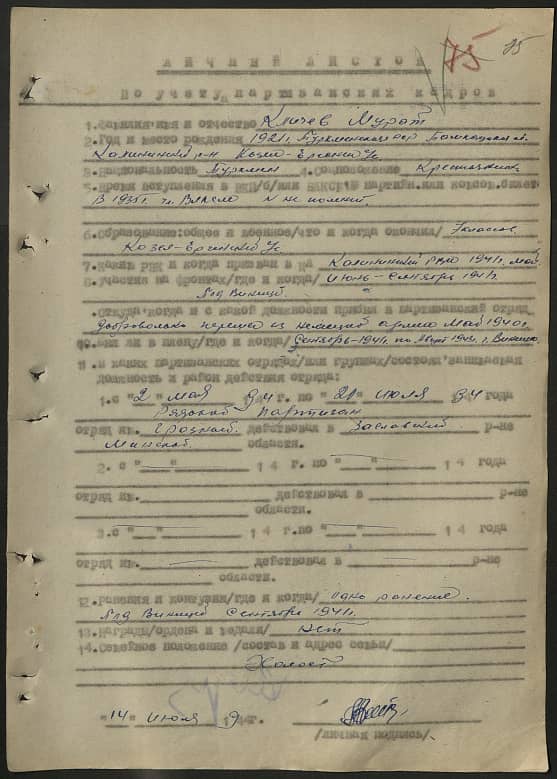 75 75
ЛИЧНЫЙ ЛИСТОК
по учету партизанских кадров
1. Фамилия имя и отчество Кличев Мурат
2. Год и место рождения 1921г. Туркменская сср
Калининский р-н
3. Национальность Туркмен 4. Соцположение Крестьянин
5. Время вступления в ВКП/б/или ВЛКСМ № партийн. или комсом. билета
В 1935 г. № не помнит.
6. Образование: общее и военное/что и когда окончил/ 7 классов
7. Каким РВК и когда призван в КА Калининский РВК 1941г. май
8. Участие на фронтах/где и когда/ Июнь - Сентябрь 1941г.
Под
9. Откуда, когда и с какой должности прибыл в партизанский отряд
Добровольно перешел из немецкой армии Май
10. Был ли в плену/где и когда/ Сентябрь-1941г. по 1943г. г.
11. В каких партизанских отрядах/или группах/состоял занимаемая
должность и район действия отряда:
1. с "2" мая 194 г. по "21" июля 194 года
Рядовой партизан
отряд им. Грозный действовал в Заславский р-не
Минской области.
2. с " " 194 г. по " " 194 года
отряд им. действовал в р-не
области.
3. с " " 194 г. по " " 194 года
отряд им. действовал в р-не
области.
12. Ранения и контузии/где и когда/ одно ранение.
Под Сентябрь 1941г.
13. Награды/ордена и медали/ нет
14. Семейное положение /состав и адрес семьи/
Холост
"14" июля 194 г.
/личная подпись/